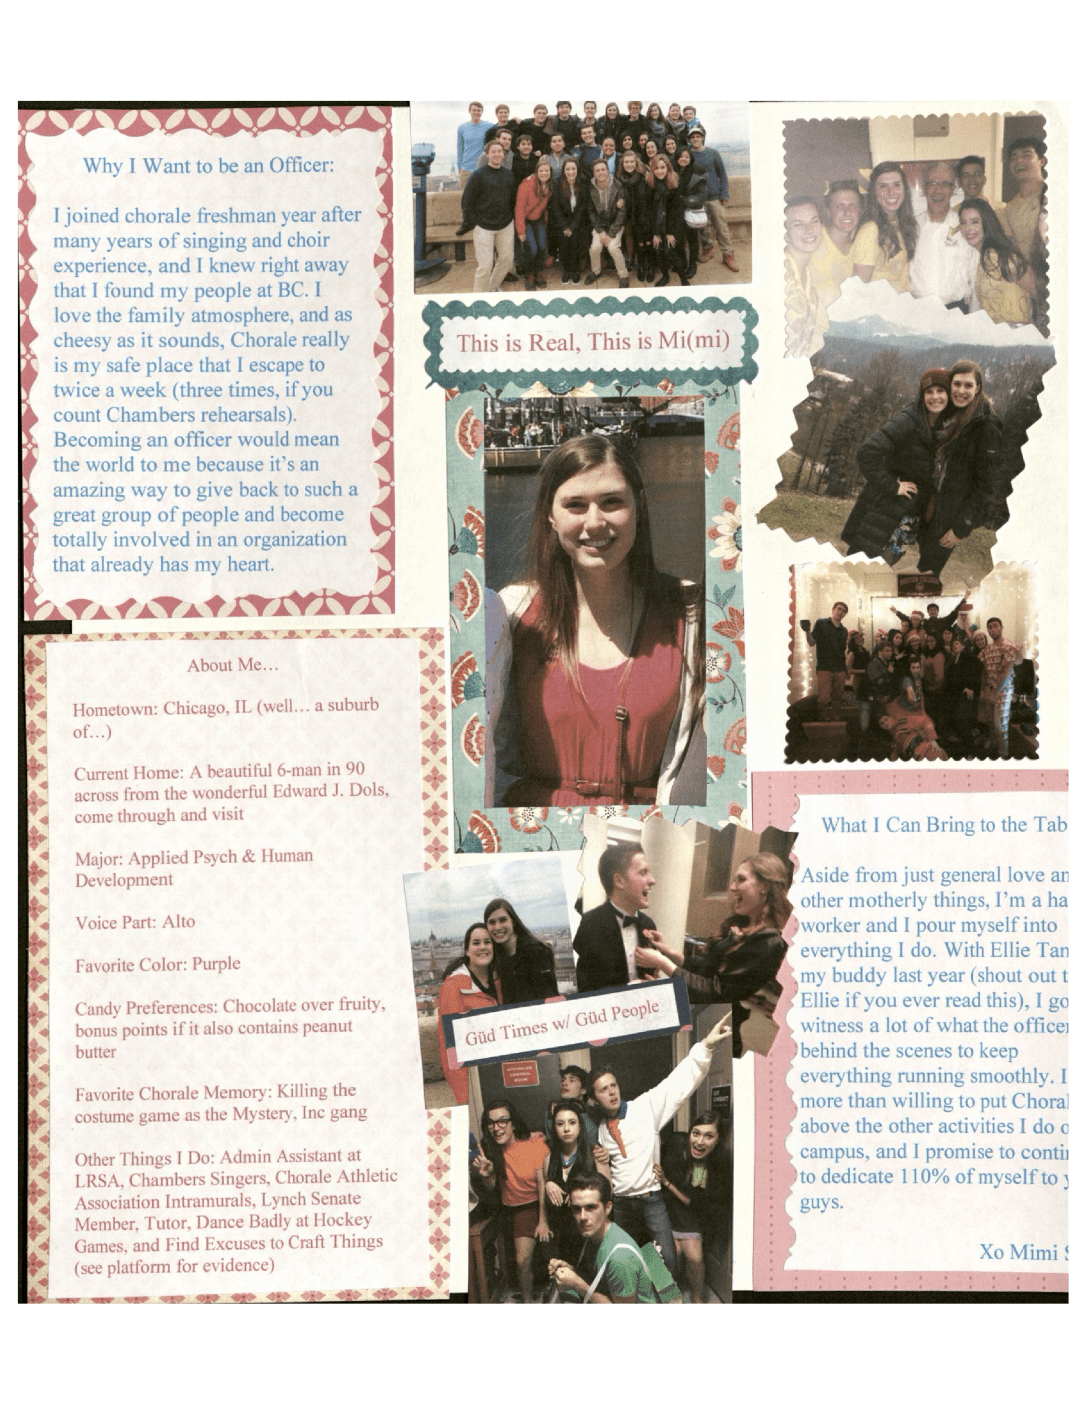 Why I Want to be an Officer:
I joined chorale freshman year after
many years of singing and choir
experience, and I knew right away
that I found my people at BC. I
love the family atmosphere, and as
cheesy as it sounds, Chorale really
is my safe place that I escape to
twice a week (three times, if you
count Chambers rehearsals).
Becoming an officer would mean
the world to me because it's an
amazing way to give back to such a
great group of people and become
totally involved in an organization
that already has my heart.
About Me…
Hometown: Chicago, IL (well… a suburb
of…)
Current Home: A beautiful 6-man in 90
across from the wonderful Edward J. Dols,
come through and visit
Major: Applied Psych & Human
Development
Voice Part: Alto
Favorite Color: Purple
Candy Preferences: Chocolate over fruity,
bonus points if it also contains peanut
butter
Favorite Chorale Memory: Killing the
costume game as the Mystery, Inc gang
Other Things I Do: Admin Assistant at
LRSA, Chambers Singers, Chorale Athletic
Association Intramurals, Lynch Senate
Member, Tutor, Dance Badly at Hockey
Games, and Find Excuses to Craft Things
(see platform for evidence)
This is Real, This is Mi(mi)
Güd Times w/ Güd People
SPRINKLER
CONTROL
ROOM
BOSTON COLLEGE
What I Can Bring to the Tab
Aside from just general love an
other motherly things, I'm a ha
worker and I pour myself into
everything I do. With Ellie Tan
my buddy last year (shout out t
Ellie if you ever read this), I go
witness a lot of what the officer
behind the scenes to keep
everything running smoothly. I
more than willing to put Choral
above the other activities I do o
campus, and I promise to conti
to dedicate 110% of myself to y
guys.
Xo Mimi S